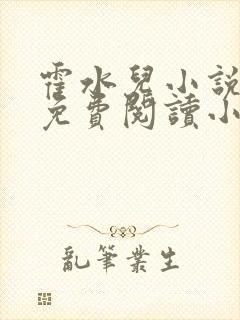 霍水兒小說
免費閱讀小
亂筆業生